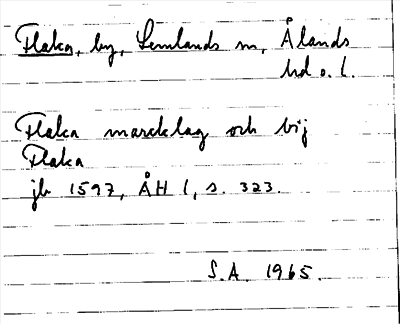 Flaka, by, Lemlands sn, Ålands
hd o. l.
Flaka marcklag och bij
Flaka
jb 1597, ÅH 1, s. 323.
S.A. 1965.